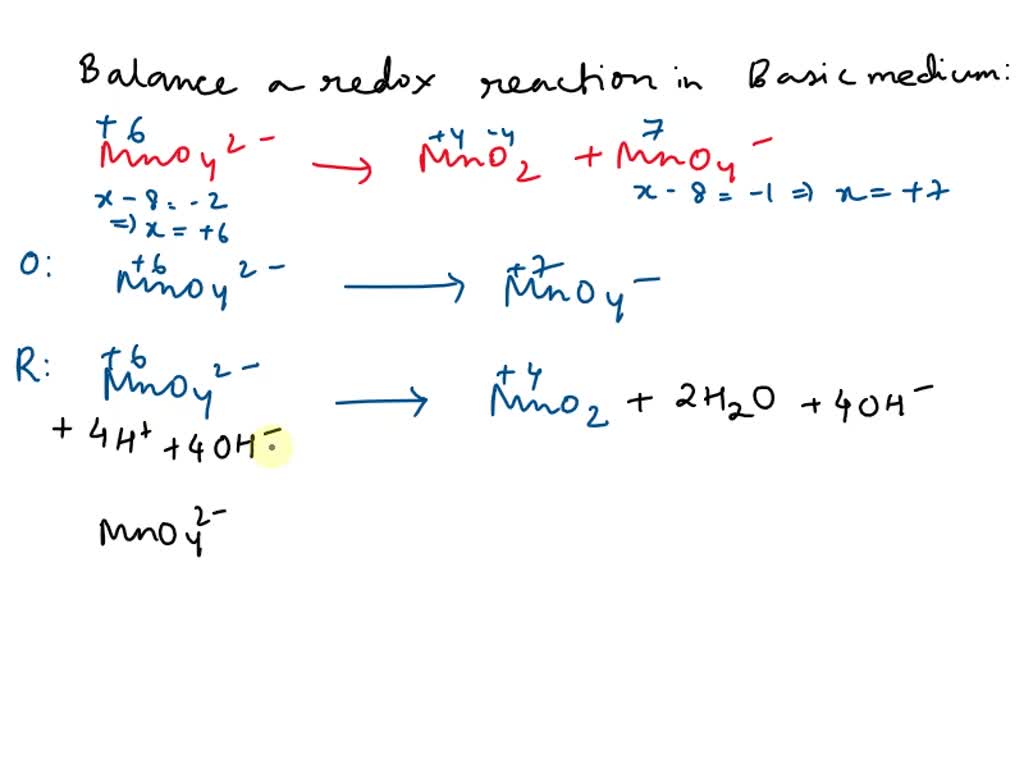 Balance a redox reaction in Basic medium:
+6 +4 -4 7
MnO4 2- → MnO2 + MnO4 -
x - 8 = -2 x - 8 = -1 ⇒ x = +7
⇒ x = +6
O: +6 MnO4 2- → +7 MnO4 -
R: +6 MnO4 2- → +4 MnO2 + 2H2O + 4OH-
+ 4H+ + 4OH-
MnO4 2-